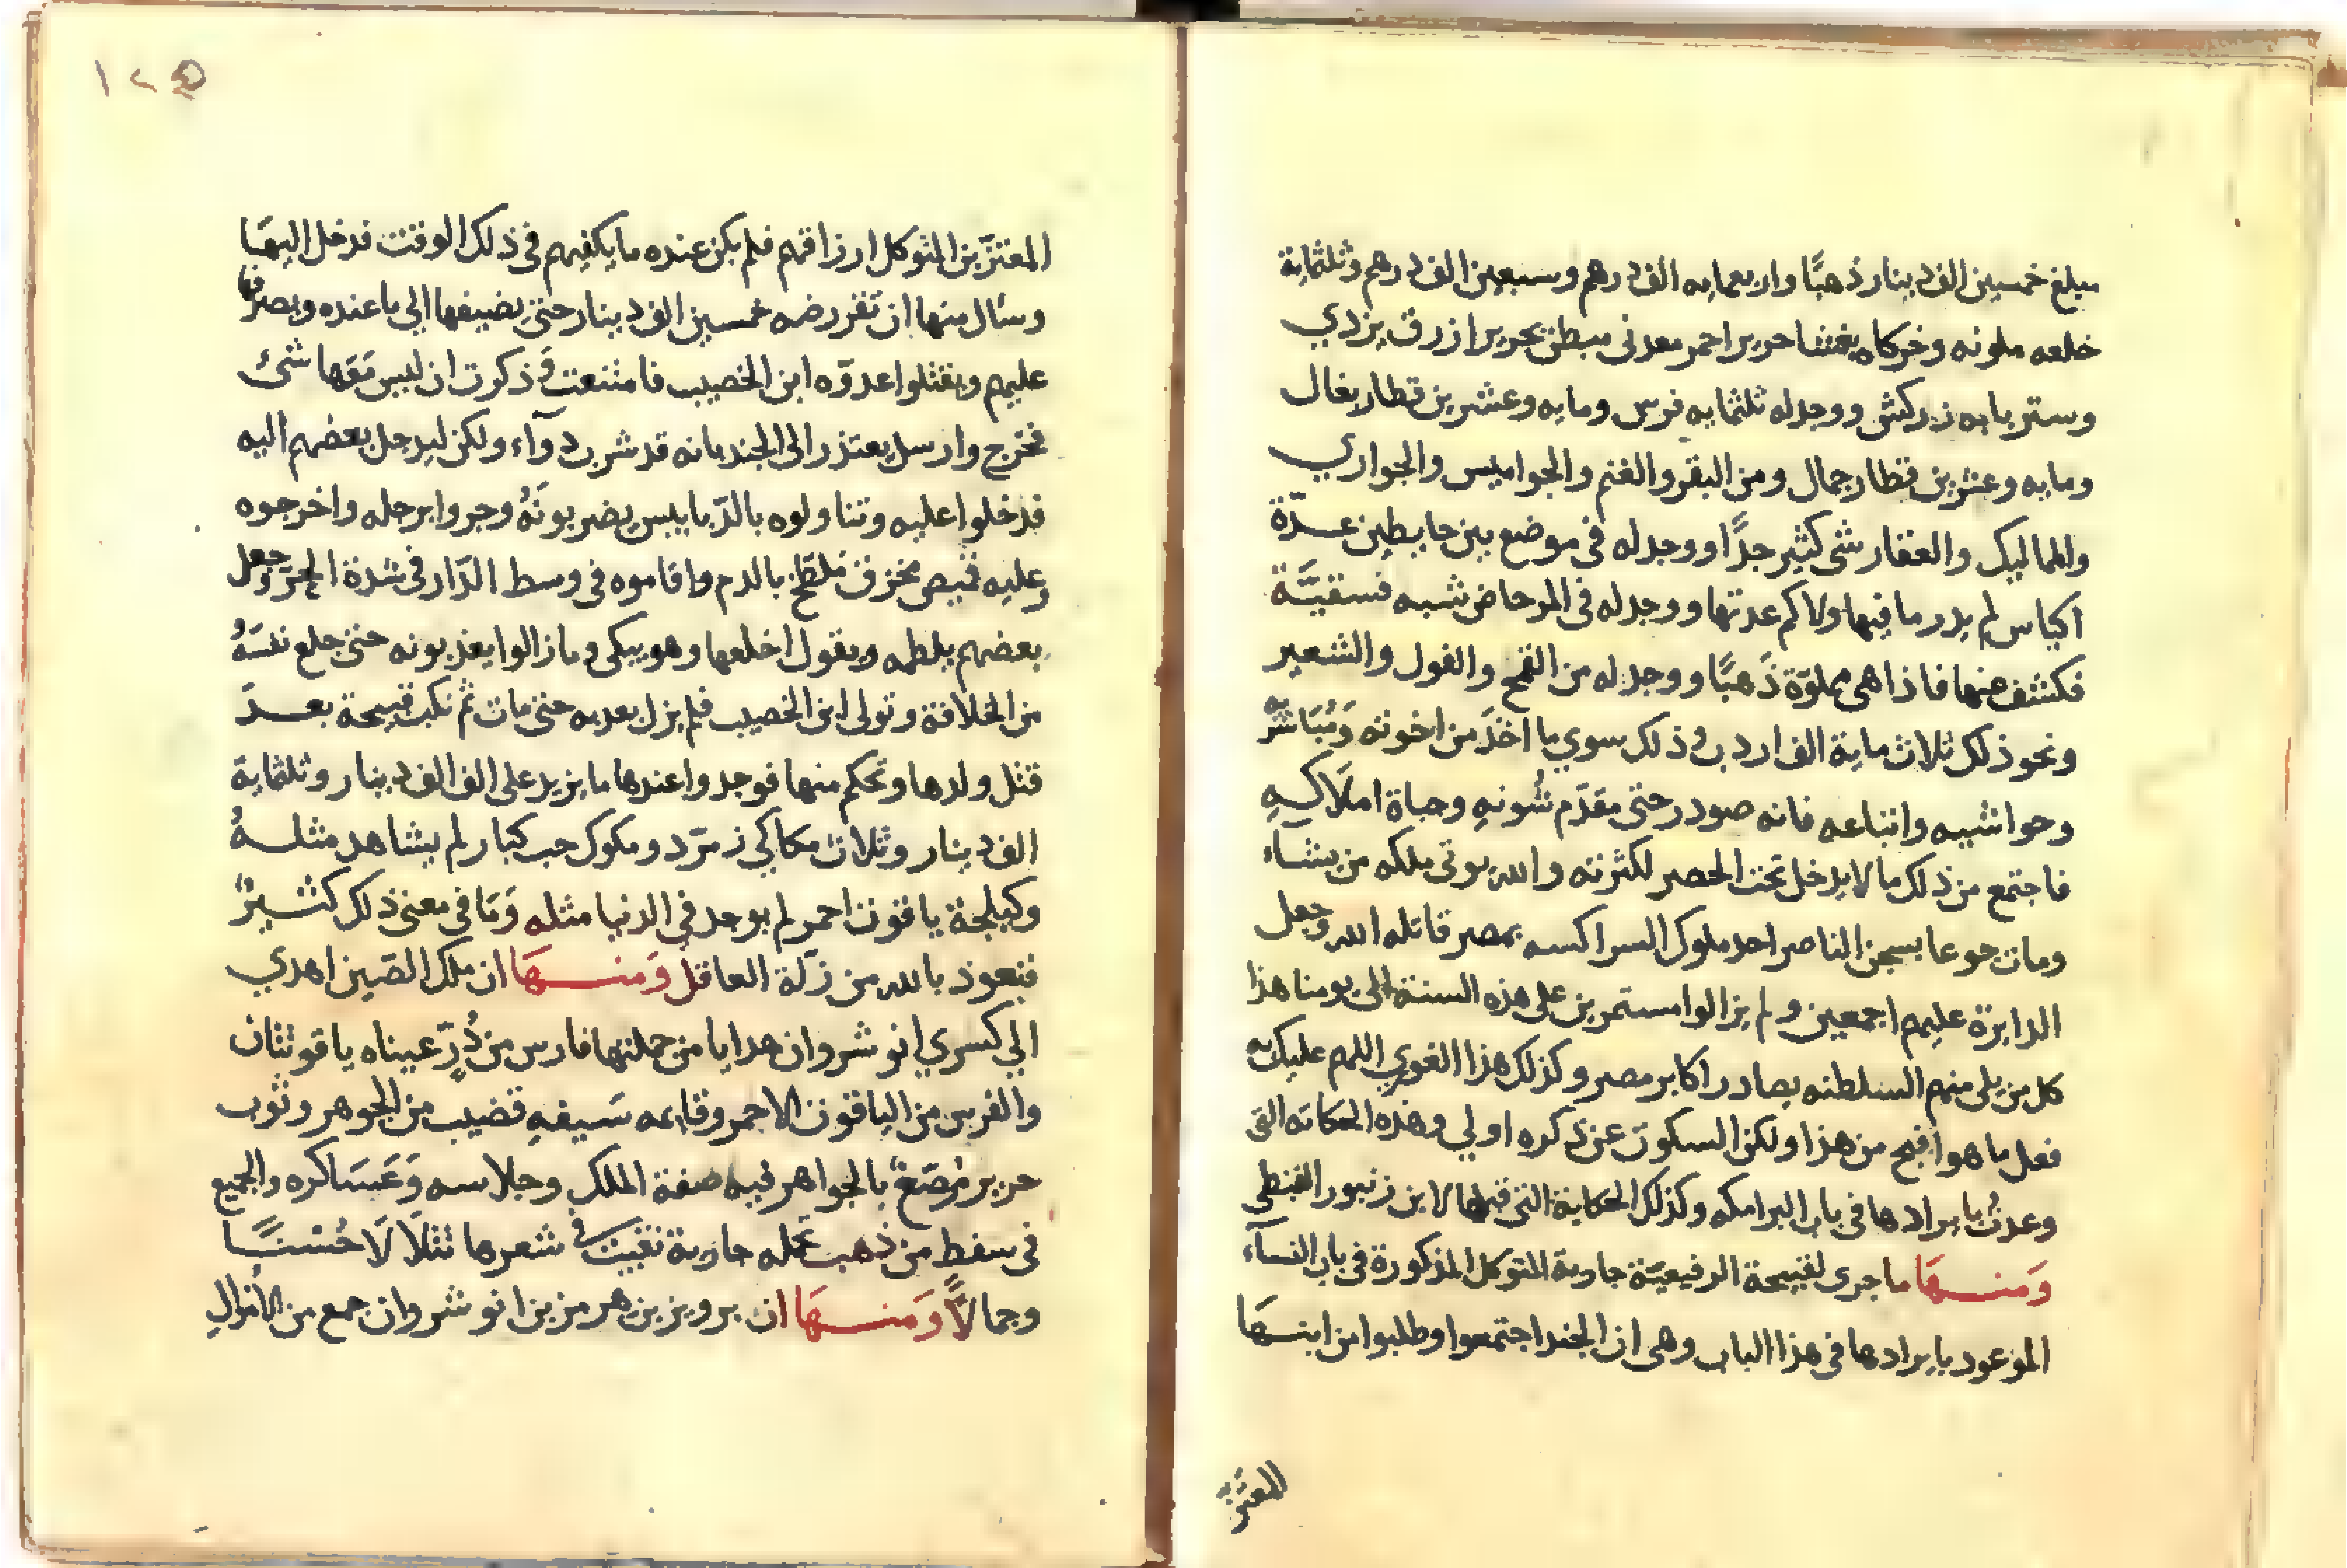 مبلغ خمسين الف دينار ذهبًا واربعمايه الف درهم وسبعين الف درهم وثلثماية
خلعه ملونه وخركاه بغشا حرير احمر معدنى مبطن بحرير ازرق يزدي
وستر بابه زركش ووجد له ثلثمايه فرس ومايه وعشرين قطار بغال
ومايه وعشرين قطار جمال ومن البقر والغنم والجواميس والجواري
والمماليك والعقار شى كثير جدًا ووجد له فى موضع بين حايطين عدّة
اكياس لم يدر ما فيها ولا كم عدتها ووجد له فى المرحاض شبه فسقيَّة
فكشف عنها فاذا هى مملوّة ذَهبًا ووجد له من القمح والفول والشعير
ونحو ذلك ثلاث ماية الف اردب وذلك سوي ما اخذَ من اخوته وَمُبَاشريه
وحواشيه واتباعه فانه صودر حتى مقدّم شُونهِ وجباة املَاكهِ
فاجتمع من ذلك ما لا يدخل تحت الحصر لكثرته والله يوتى ملكه من يشاء
ومات جوعا بسجن الناصر احد ملوك السراكسه بمصر قاتله الله وجعل
الدايرة عليهم اجمعين ولم يزالوا مستمرين على هذه السنة الى يومنا هذا
كل من يلى منهم السلطنه يصادر اكابر مصر وكذلك هذا الغوري اللهم عليك به
فعل ما هو اقبح من هذا ولكن السكوت عن ذكره اولي وهذه الحكاته التى
وعدتُ بايرادها فى باب البرامكه وكذلك الحكاية التى قبلها لابن زنبور القبطى
وَمنهَا ما جرى لقبيحة الرفيعيّة جارية المتوكل المذكورة فى باب النسآء
الموعود بايرادها فى هذا الباب وهى ان الجند اجتمعوا وطلبوا من ابنهَا
المعتز بن
١٢٥
المعتزّ بن المتوكل ارزاقهم فلم يكن عنده ما يكفيهم فى ذلك الوقت فدخل اليهَا
وسال منها ان تقررضه خمسين الف دينار حتى يضيفها الى ما عنده ويصرفها
عليهم ويقتلوا عدوّه ابن الخصيب فامتنعت وَذكرت ان ليس مَعَها شئ
فخرج وارسل يعتذر الى الجند بانه قد شرب دوآء ولكن ليدخل بعضهم اليه
فدخلوا عليه وتناولوه بالدّبابيس يضربونَهُ وجروا برجله واخرجوه
وعليه قميص مخرق مُلطّخ بالدم واقاموه فى وسط الدّار فى شدة الحرّ وَجعل
بعضهم يلطمه ويقول اخلعها وهو يبكى وما زالوا يعذبونه حتى خلع نفسَهُ
من الخلافة وتولى ابن الخصيب فلم يزل يعدبه حتى مات ثم نكب قبيحة بعدَ
قتل ولدها وتحكم منها فوجدوا عندها ما يزيد على الف الف دينار وثلثماية
الف دينار وثلاث مكاكي زمرّد ومكوك حب كبار لم يشاهد مثلهُ
وكيلجة ياقوت احمر لم يوجد فى الدنيا مثله وَمَا فى معنى ذلك كثيرٌ
فنعوذ بالله من زلّة العاقل وَمنهَا ان ملك الصّين اهدي
الي كسري انوشروان هدايا من جملتها فارس من دُرّ عيناه ياقوتتان
والفرس من الياقوت الاحمر وقايمه سَيفهِ قضيب من الجوهر وثوب
حرير مُرصّعٌ بالجواهر فيه صفة الملك وجلاسه وَعَسَاكره والجميع
فى سفط من ذهب تحمله جارية تغيبت فى شعرها تتلَالَا حُسْنًا
وجمالًا وَمنهَا ان برويز بن هرمز بن انوشروان جمع من الاموَال